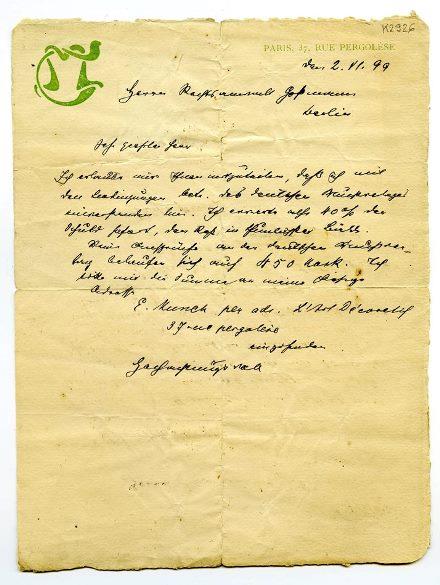 K2926
PARIS, 37, RUE PERGOLÈSE
den 2. VI. 99
Herrn Rechtsanwalt
Berlin
Sehr geehrter Herr
Ich erlaube mir Ihnen mitzutheilen, daß ich mit
den Bedingungen betr. des deutschen
einverstanden bin. Ich erwarte also 40% der
Schuld
Meine Ansprüche an den deutschen
belaufen sich auf 450 Mark. Ich
bitte mir die Summe an meine
Adresse
E. Munch per adr. L'Art Décoratif
37 rue pergolèse
einzusenden
Hochachtungsvoll